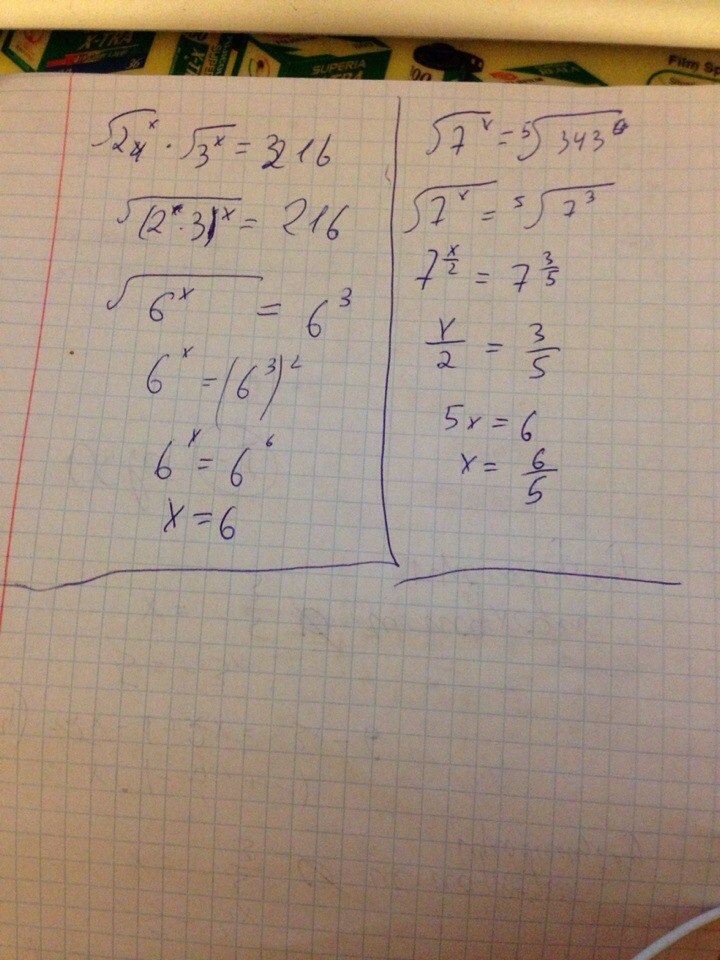 X-TRA
SUPERIA
Film Sp
√2^x · √3^x = 216
√(2·3)^x = 216
√6^x = 6^3
6^x = (6^3)^2
6^x = 6^6
x = 6
√7^x = ⁵√343
√7^x = ⁵√7^3
7^(x/2) = 7^(3/5)
x/2 = 3/5
5x = 6
x = 6/5